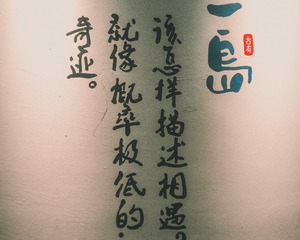 一島
该怎样描述相遇？
就像概率极低的
奇迹。